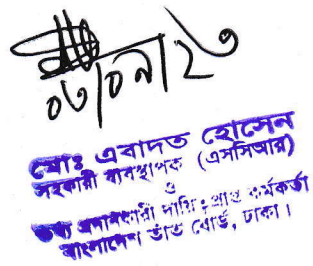 ০৩।০৭।২৩
মোঃ এবাদত হোসেন
সহকারী ব্যবস্থাপক (এসসিআর)
ও
তথ্য প্রদানকারী দায়িত্বপ্রাপ্ত কর্মকর্তা
বাংলাদেশ তাঁত বোর্ড, ঢাকা।